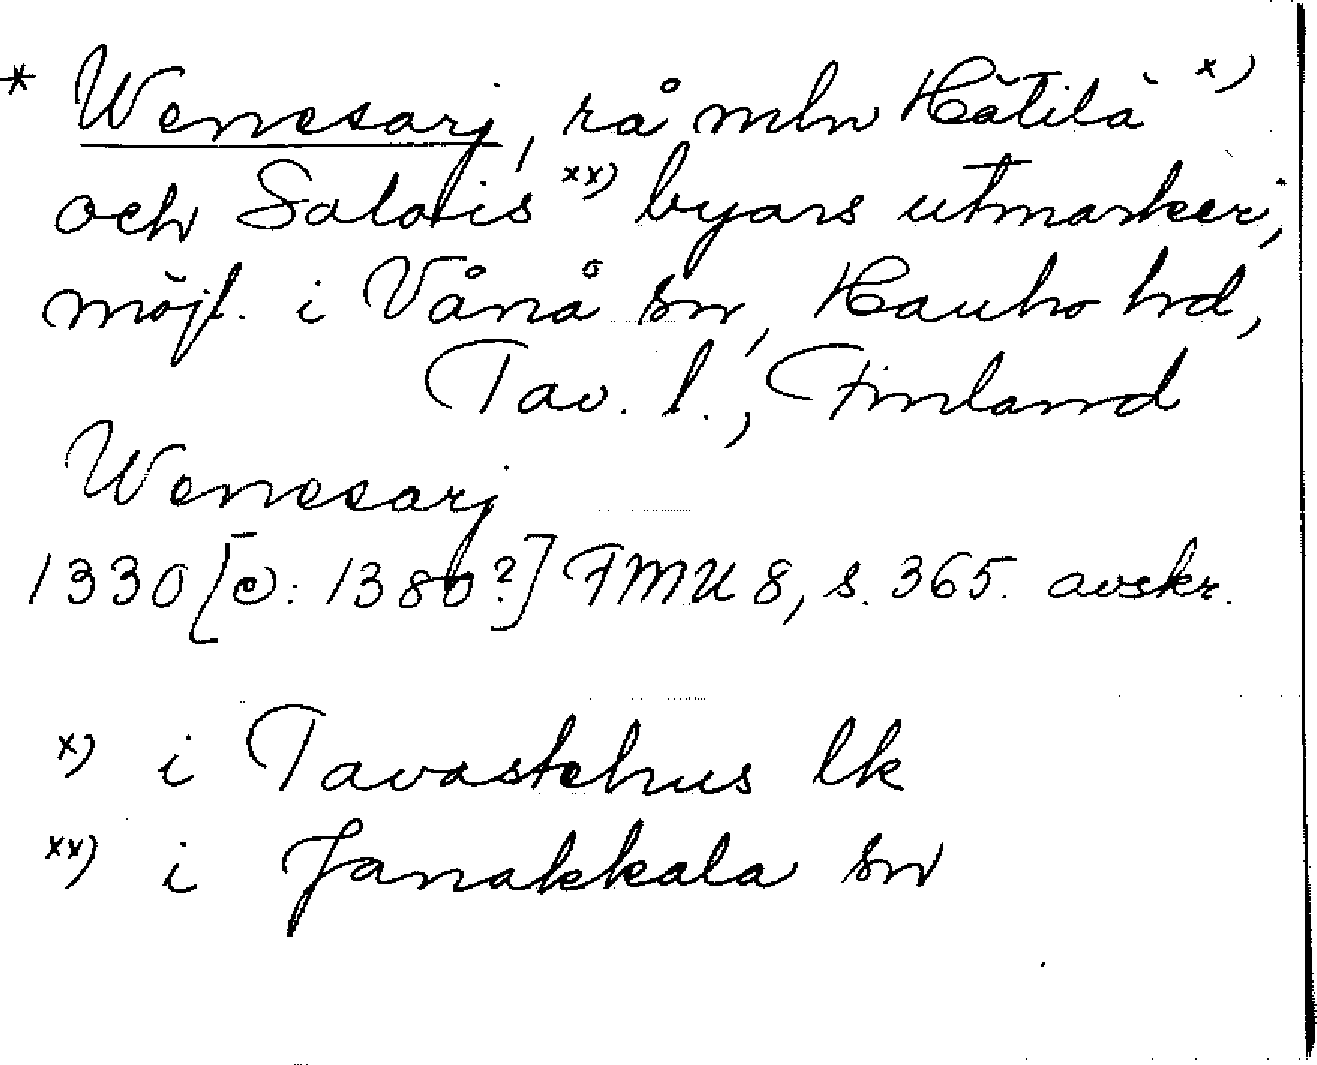 * Wenesarj, rå mln Hätilä x)
och Salois xx) byars utmarker,
möjl. i Vånå sn, Hauho hd,
Tav. l., Finland
Wenesarj
1330 [c: 1380?] FMU 8, s. 365. avskr.
x) i Tavastehus lk
xx) i Janakkala sn